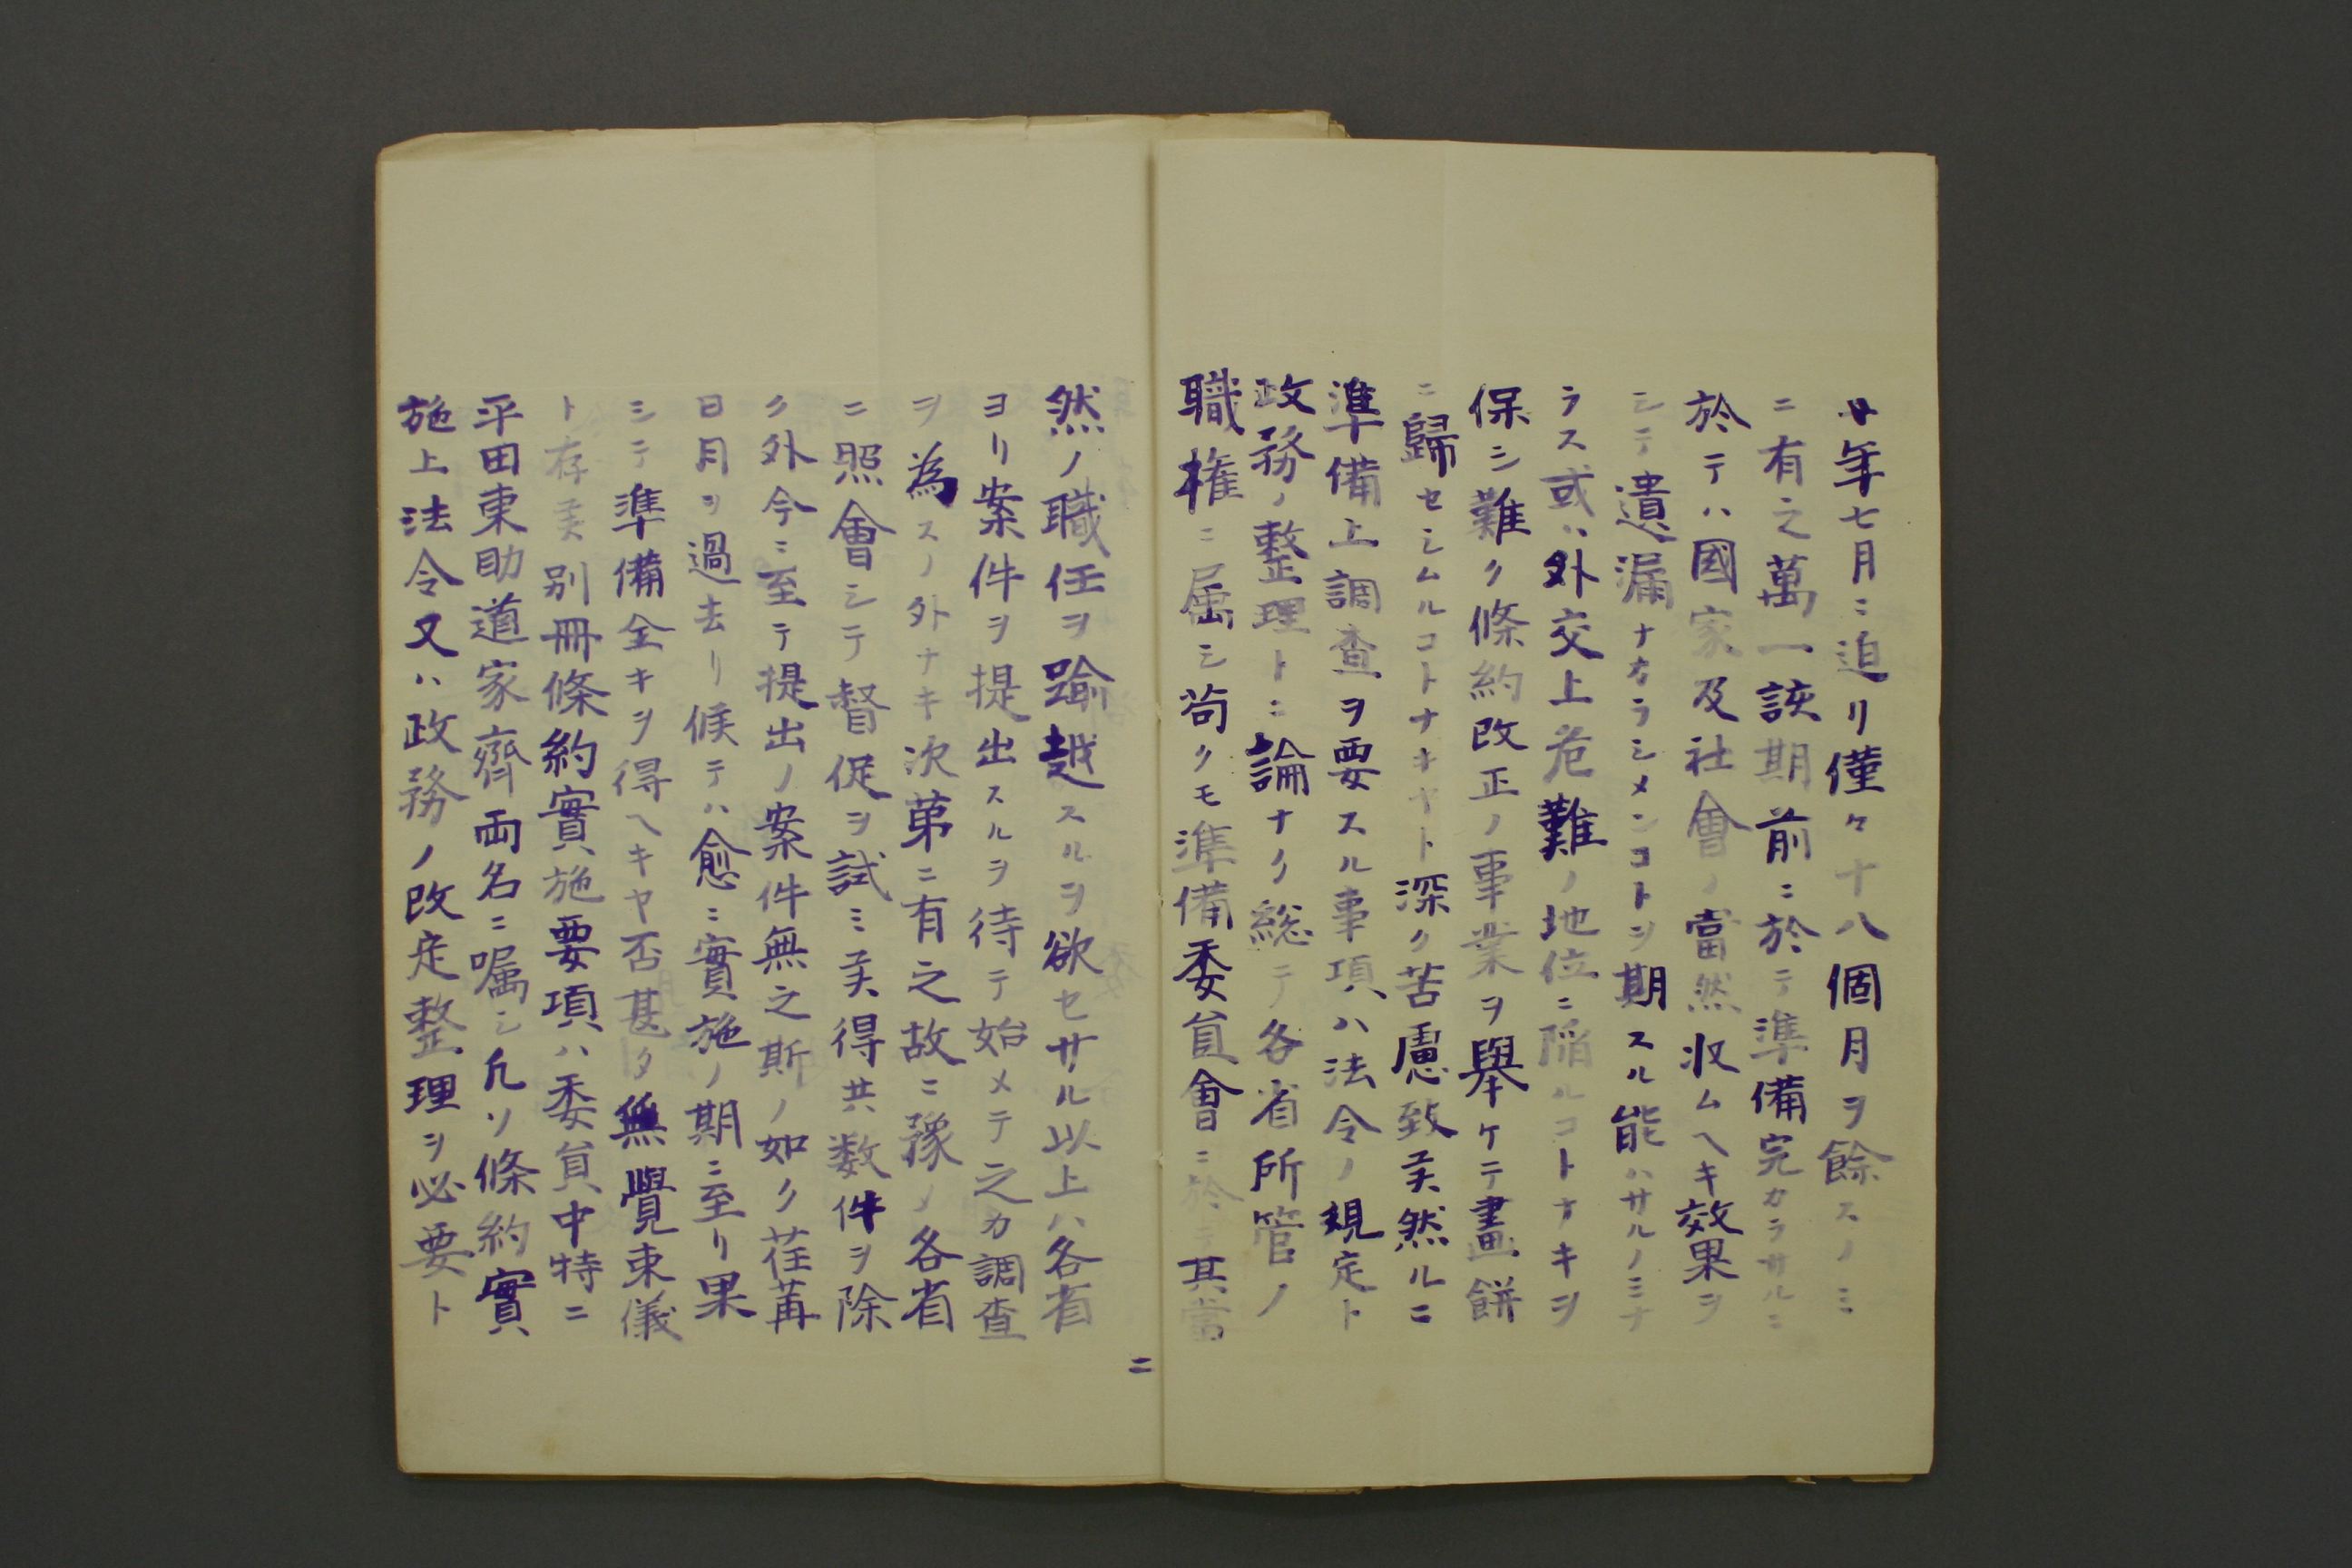 廿年七月ニ迫リ僅々十八個月ヲ餘スノミ
ニ有之萬一該期前ニ於テ準備完カラサルニ
於テハ國家及社會ノ當然収ムヘキ效果ヲ
シテ遺漏ナカラシメンコトヲ期スル能ハサルノミナ
ラス或ハ外交上危難ノ地位ニ陥ルコトナキヲ
保シ難ク條約改正ノ事業ヲ舉ケテ畫餅
ニ歸セシムルコトナキヤト深ク苦慮致候然ルニ
準備上調査ヲ要スル事項ハ法令ノ規定ト
政務ノ整理トニ論ナク総テ各省所管ノ
職権ニ屬シ苟クモ準備委員會ニ於テ其當
然ノ職任ヲ踰越スルヲ欲セサル以上ハ各省
ヨリ案件ヲ提出スルヲ待テ始メテ之カ調査
ヲ為スノ外ナキ次第ニ有之故ニ豫メ各省
ニ照會シテ督促ヲ試ミ候得共数件ヲ除
ク外今ニ至テ提出ノ案件無之斯ノ如ク荏苒
日月ヲ過去リ候テハ愈ニ實施ノ期ニ至リ果
シテ準備全キヲ得ヘキヤ否甚タ無覺束儀
ト存候別冊條約實施要項ハ委員中特ニ
平田東助道家齊両名ニ嘱シ凡ソ條約實
施上法令又ハ政務ノ改定整理ヲ必要ト
二